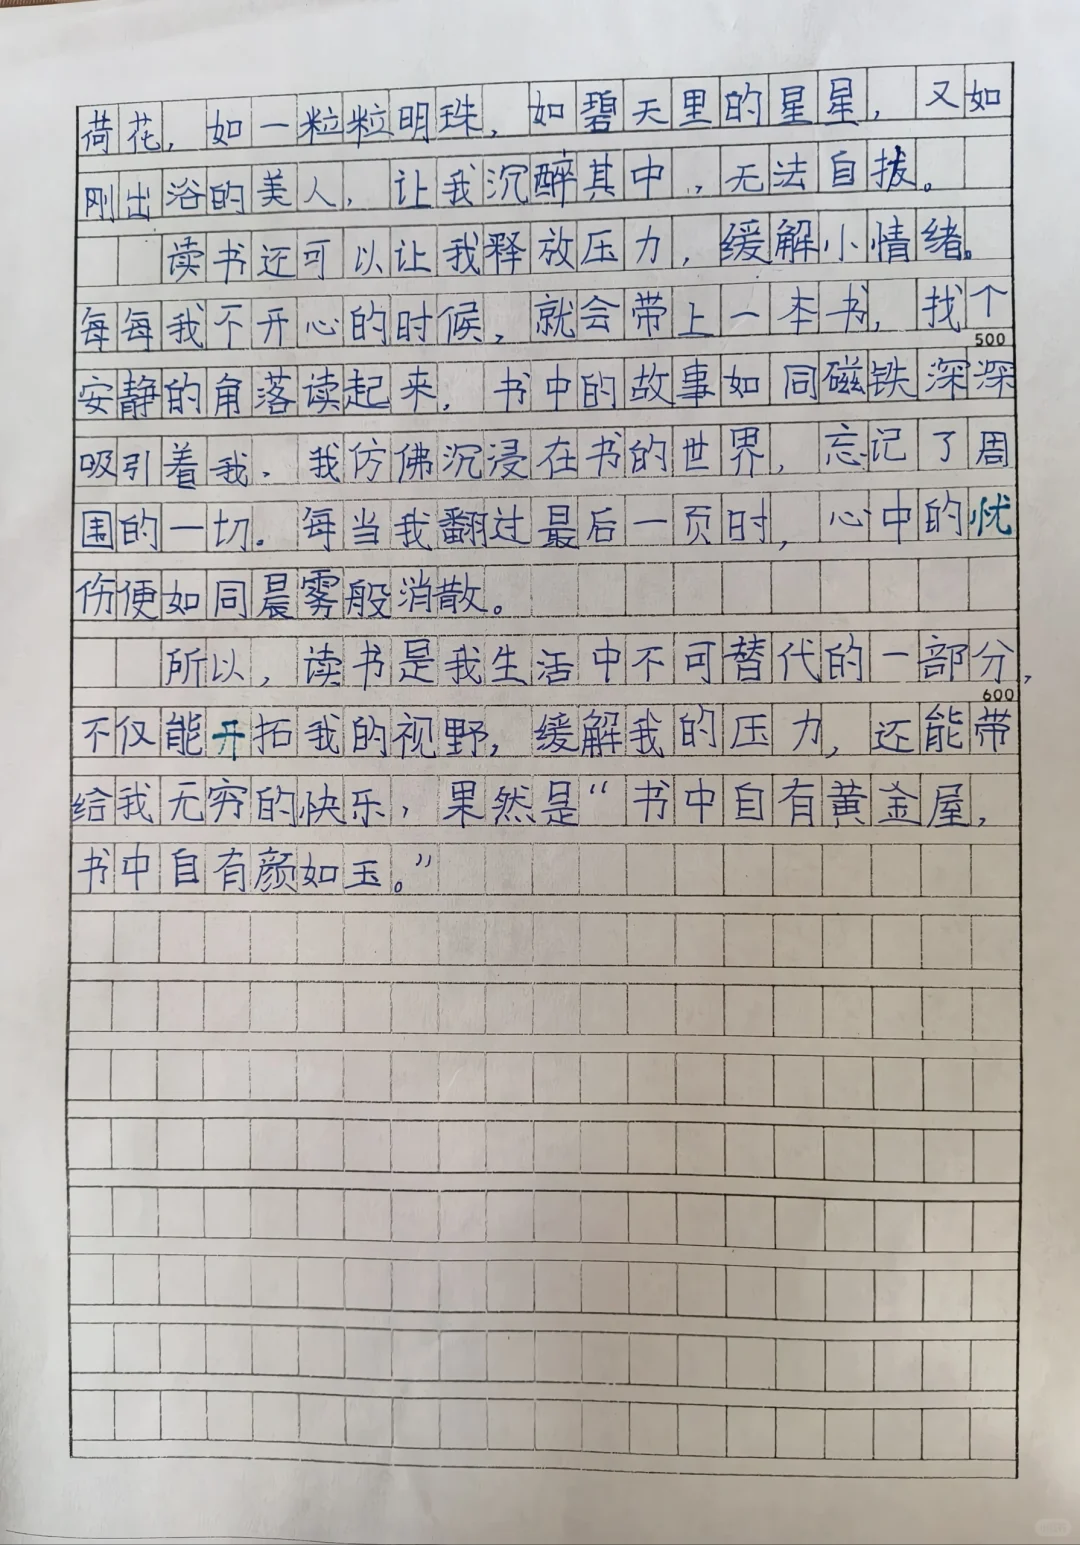 荷花，如一粒粒明珠，如碧天里的星星，又如
刚出浴的美人，让我沉醉其中，无法自拔。
读书还可以让我释放压力，缓解小情绪。
每每我不开心的时候，就会带上一本书，找个
500
安静的角落读起来，书中的故事如同磁铁深深
吸引着我。我仿佛沉浸在书的世界，忘记了周
围的一切。每当我翻过最后一页时，心中的忧
伤便如同晨雾般消散。
所以，读书是我生活中不可替代的一部分，
600
不仅能开拓我的视野，缓解我的压力，还能带
给我无穷的快乐，果然是“书中自有黄金屋，
书中自有颜如玉。”